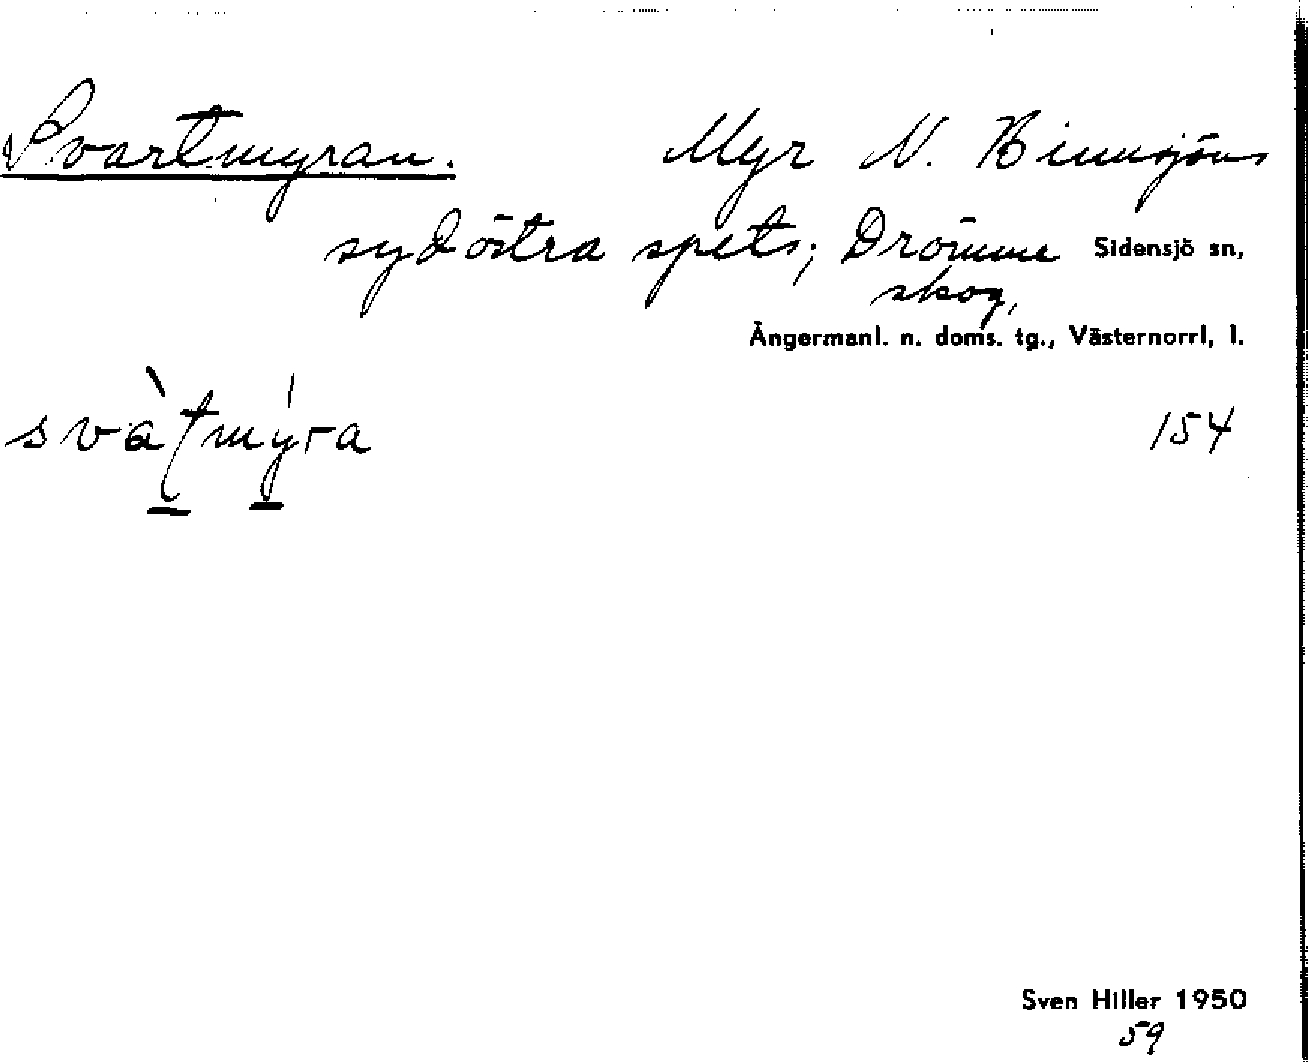 Svartmyran. Myr N. Binnsjöns
sydöstra spets; Drömme Sidensjö sn,
skog,
Ångermanl. n. doms. tg., Västernorrl, l.
svàtmýra 154
Sven Hiller 1950
59